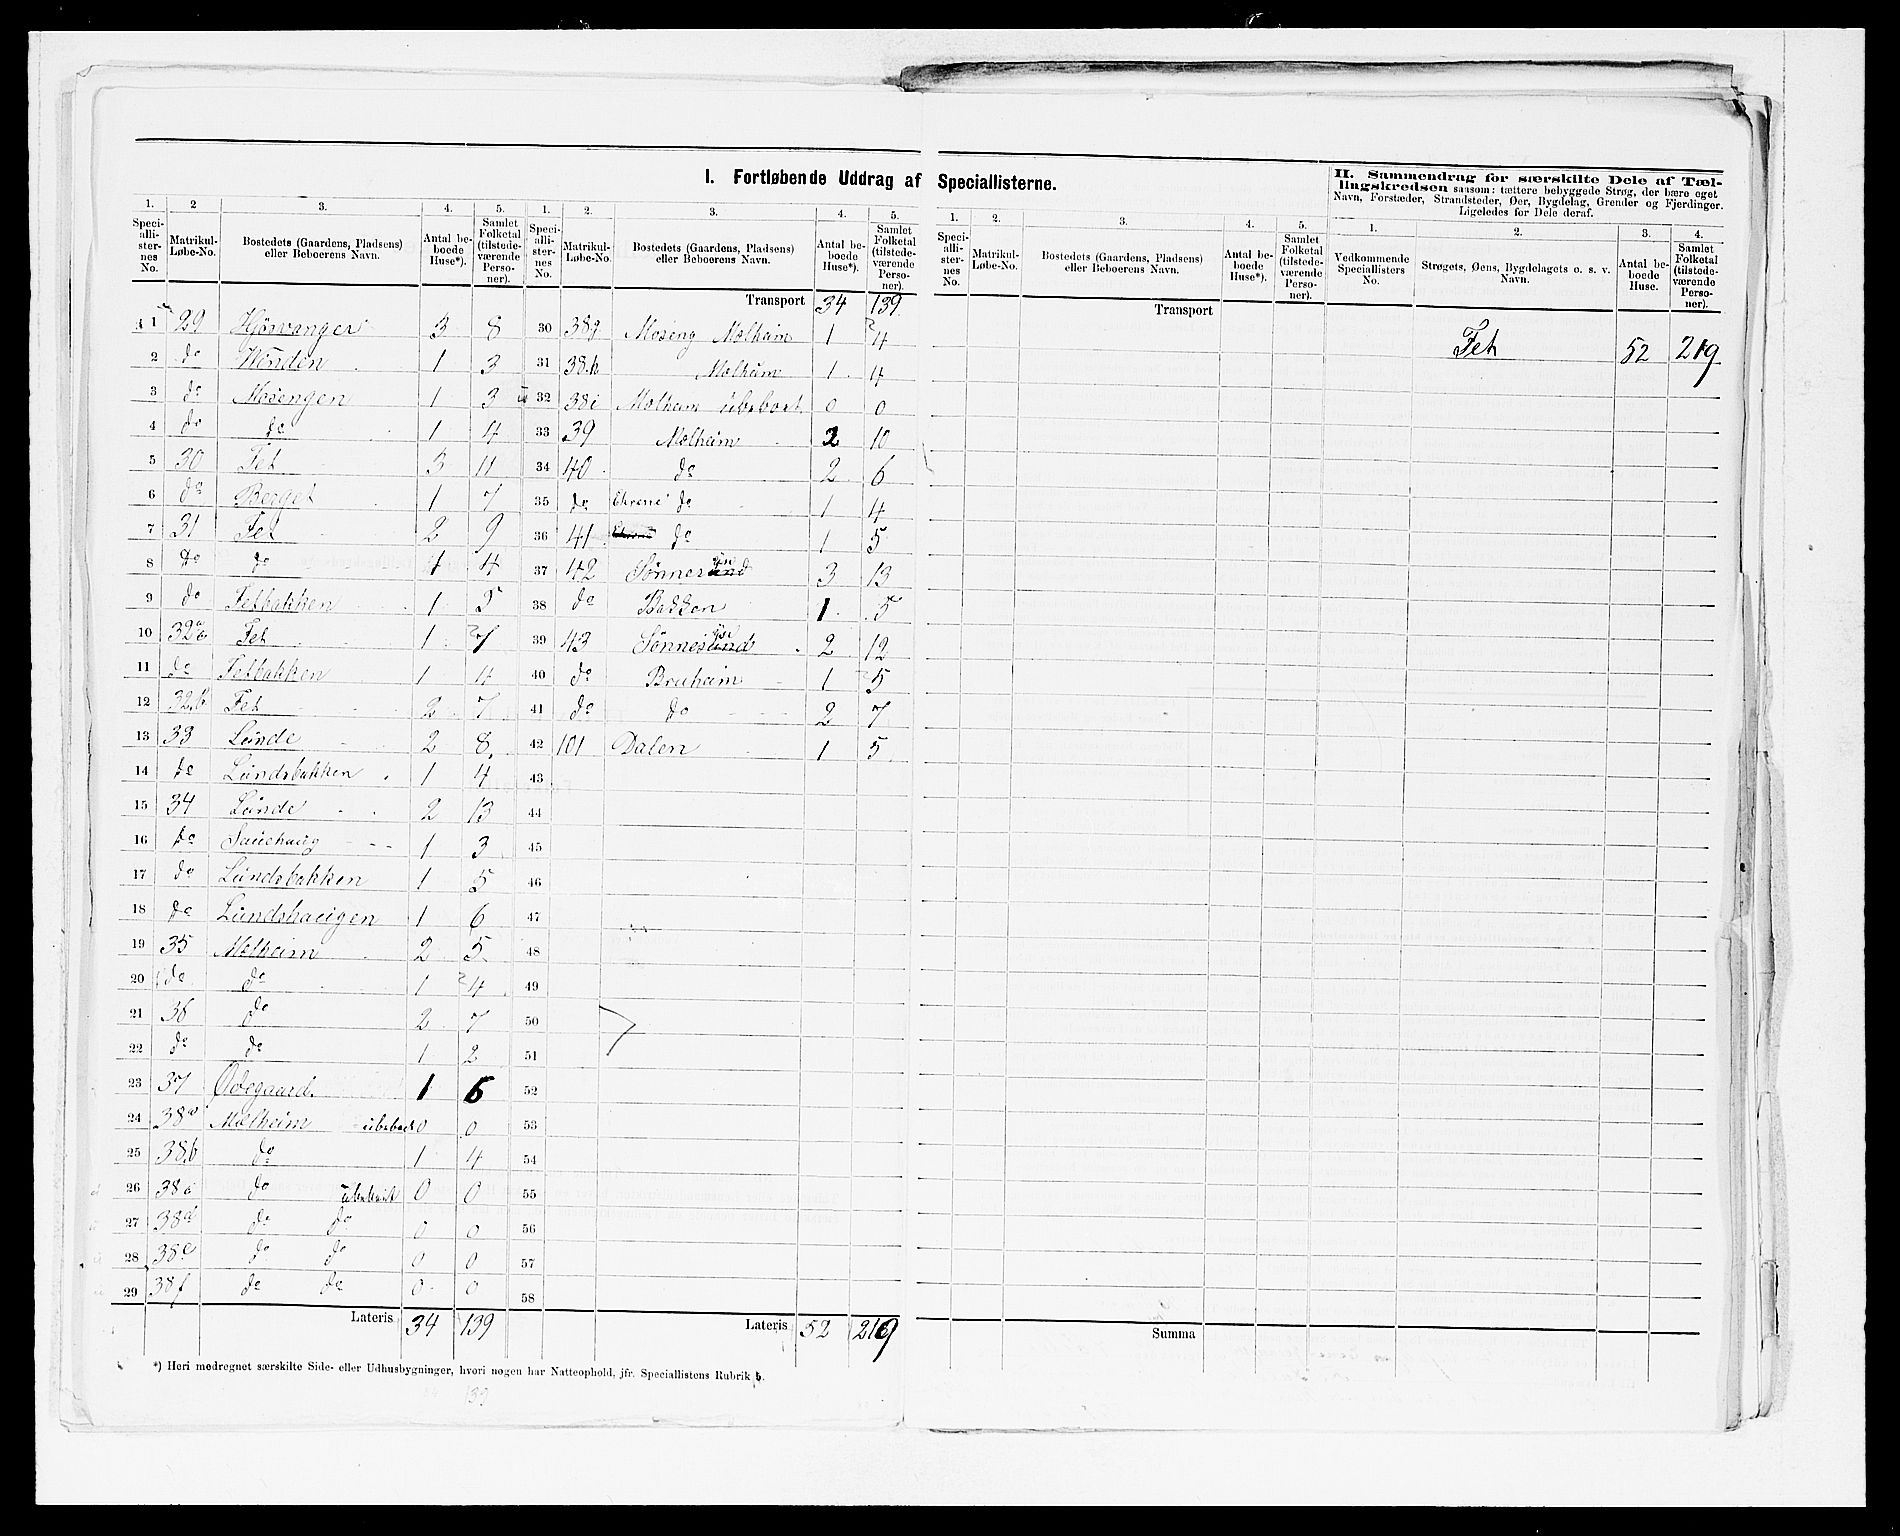 I. Fortløbende Uddrag af Speciallisterne.
II. Sammendrag for særskilte Dele af Tæl-
lingskredsen saasom: tættere bebyggede Strøg, der bære eget
Navn, Forstæder, Strandsteder, Øer, Bygdelag, Grender og Fjerdinger.
Ligeledes for Dele deraf.
1. 2 3. 4. 5. 1. 2. 3. 4. 5. 1. 2. 3. 4. 5. 1. 2. 3. 4.
Speci-alli-ster-nes No. Matrikul-Løbe-No. Bostedets (Gaardens, Pladsens) eller Beboerens Navn. Antal be-boede Huse*). Samlet Folketal (tilstede-værende Perso-ner).
Speci-alli-ster-nes No. Matrikul-Løbe-No. Bostedets (Gaardens, Pladsens) eller Beboerens Navn. Antal be-boede Huse*). Samlet Folketal (tilstede-værende Perso-ner).
Speci-alli-ster-nes No. Matrikul-Løbe-No. Bostedets (Gaardens, Pladsens) eller Beboerens Navn. Antal be-boede Huse*). Samlet Folketal (tilstede-værende Perso-ner).
Vedkommende Speciallisters No. Strøgets, Øens, Bygdelagets o. s. v. Navn. Antal be-boede Huse. Samlet Folketal (tilstede-værende Perso-ner).
1 29 Hjøsvanger 3 8
2 do 1 3
3 do Mosengen 1 3
4 do do 1 4
5 30 Fet 3 11
6 do Berget 1 7
7 31 Fet 2 9
8 do do 1 4
9 do Fetbakken 1 5
10 32a Fet 1 7
11 do Fetbakken 1 4
12 32b Fet 2 7
13 33 Lunde 2 8
14 do Lundsbakken 1 4
15 34 Lunde 2 13
16 do Sauehaug 1 3
17 do Lundsbakken 1 5
18 do Lundshaugen 1 6
19 35 Molheim 2 5
20 do do 1 4
21 36 do 2 7
22 do do 1 2
23 37 Ødegaard 1 6
24 38a Molheim ubeboet 0 0
25 38b do 1 4
26 38c do ubeboet 0 0
27 38d do do 0 0
28 38e do do 0 0
29 38f do do 0 0
Lateris 34 139
Transport 34 139
30 38g Moseng Molheim 1 4
31 38h Molheim 1 4
32 38i Molheim ubeboet 0 0
33 39 Molheim 2 10
34 40 do 2 6
35 do Ekrene do 1 4
36 41 do 1 5
37 42 3 13
38 do Bakken 1 5
39 43 2 12
40 do Bruheim 1 5
41 do do 2 7
42 101 Dalen 1 5
43
44
45
46
47
48
49
50
51
52
53
54
55
56
57
58
Lateris 52 219
Transport
Summa
Fet 52 219
*) Heri medregnet særskilte Side- eller Udhusbygninger, hvori nogen har Natteophold, jfr. Speciallistens Rubrik b.
139